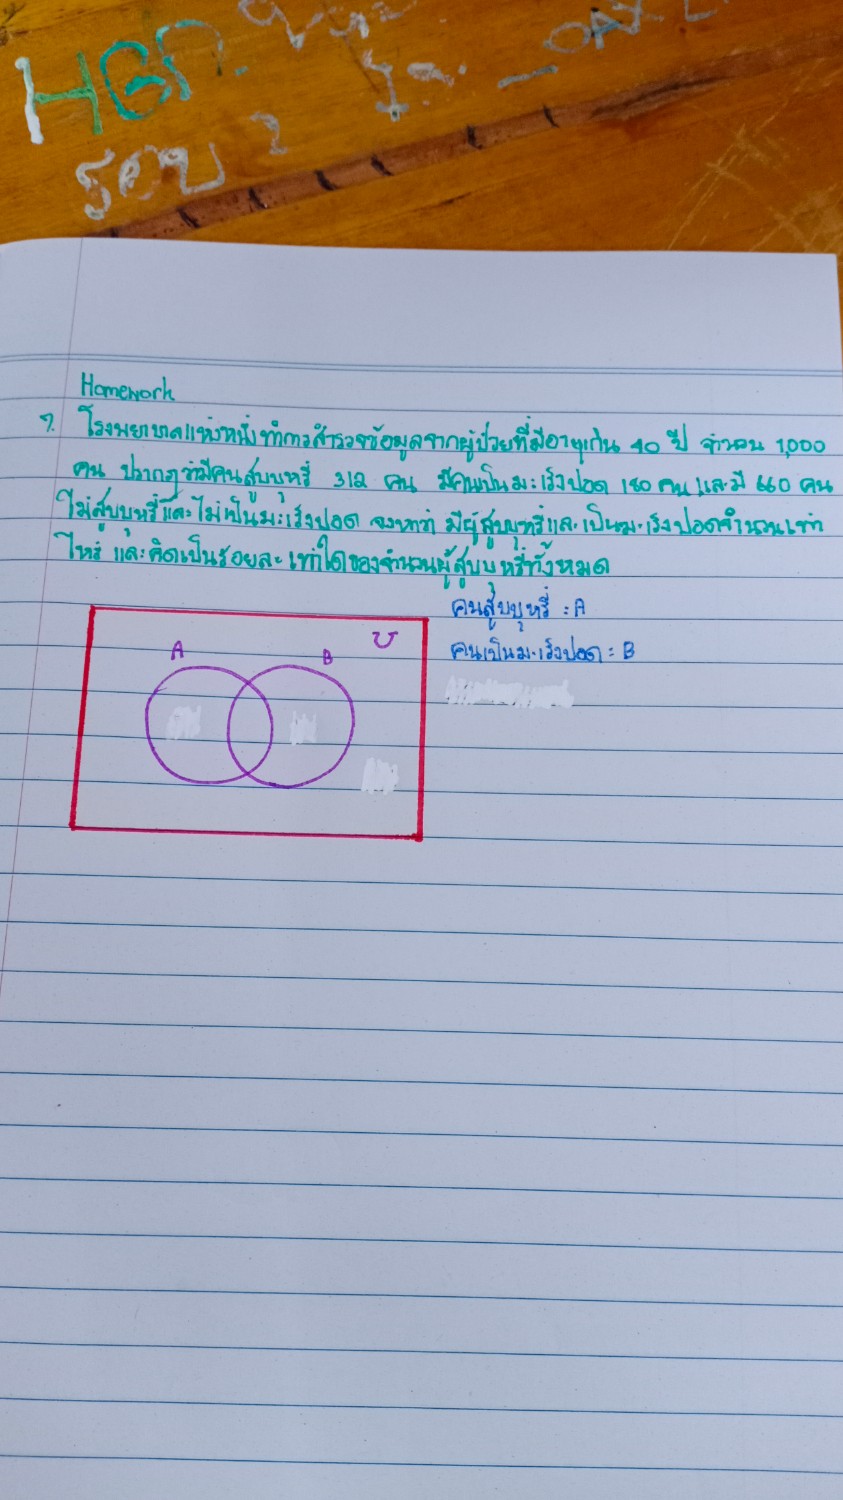 HBD
รอบ
Homework
7. โรงพยาบาลแห่งหนึ่งทำการสำรวจข้อมูลจากผู้ป่วยที่มีอายุเกิน 40 ปี จำนวน 1,000
คน ปรากฏว่ามีคนสูบบุหรี่ 312 คน มีคนเป็นมะเร็งปอด 180 คน และมี 660 คน
ไม่สูบบุหรี่และไม่เป็นมะเร็งปอด จงหาว่า มีผู้สูบบุหรี่และเป็นมะเร็งปอดจำนวนเท่า
ไหร่ และคิดเป็นร้อยละเท่าใดของจำนวนผู้สูบบุหรี่ทั้งหมด
คนสูบบุหรี่ : A
คนเป็นมะเร็งปอด : B
A B U